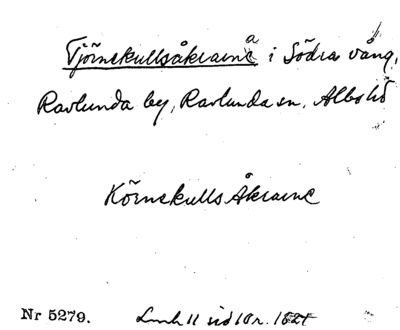 Tjörnekullsåkrarne i Södra vång,
Ravlunda by, Ravlunda sn, Albo hd
Körnekulls Åkrarne
Nr 5279. Lmh 11 sid 10 r.